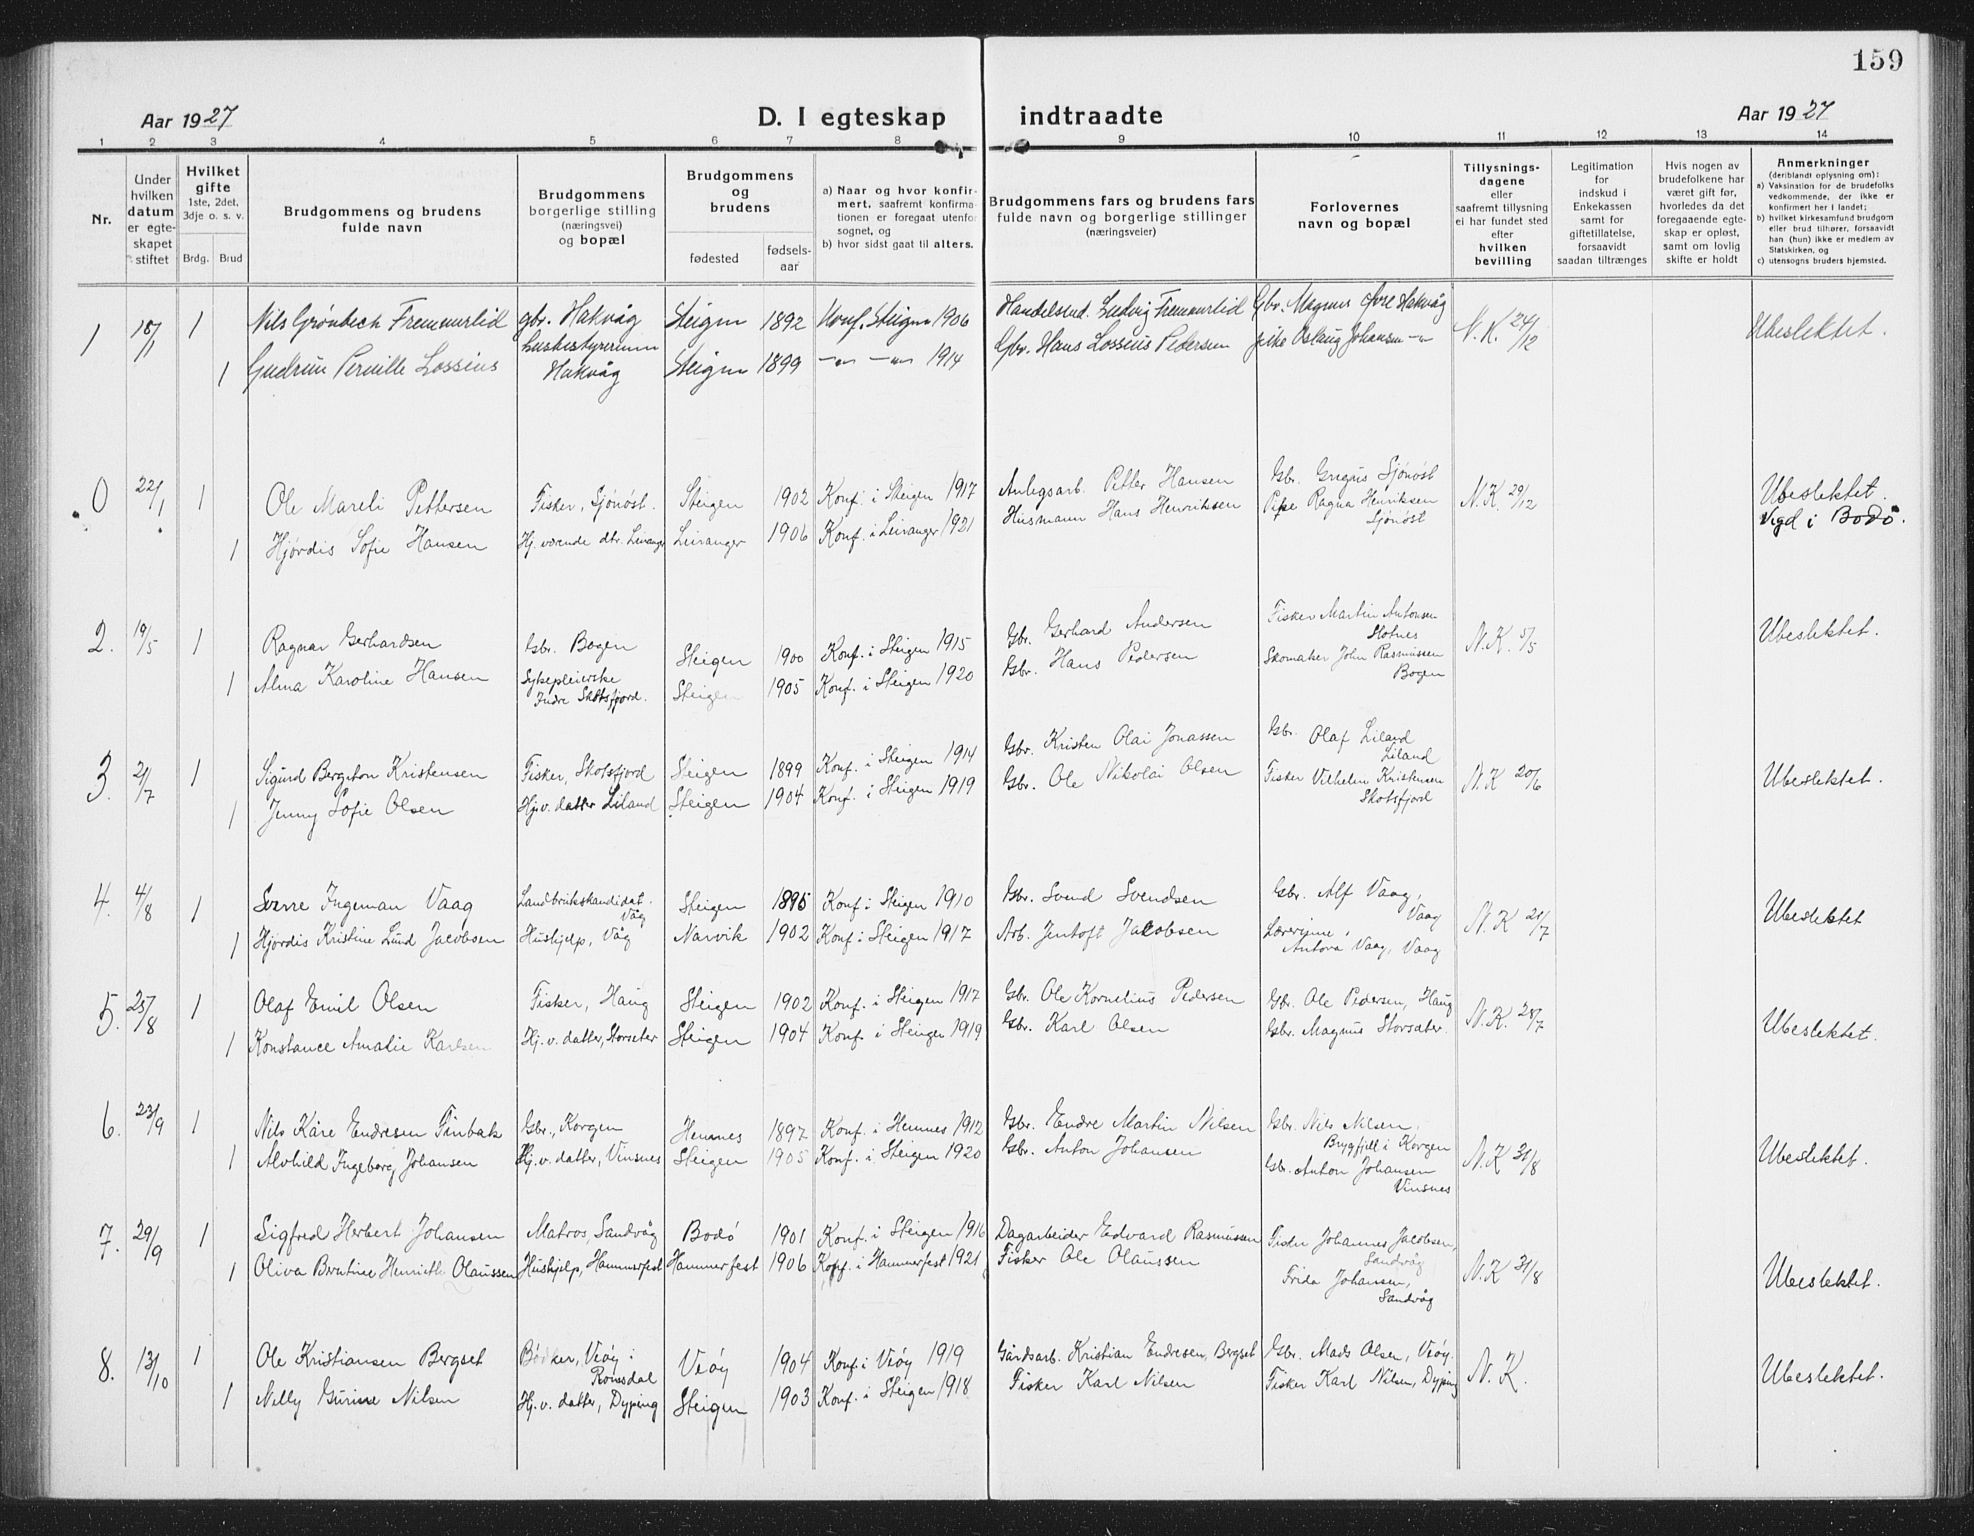 159
Aar 1927
D. I egteskap indtraadte
Aar 1927
1 2 3 4 5 6 7 8 9 10 11 12 13 14
Nr.
Under hvilken datum er egteskapet stiftet
Hvilket gifte 1ste, 2det, 3dje o. s. v.
Brdg. Brud
Brudgommens og brudens fulde navn
Brudgommens borgerlige stilling (næringsvei) og bopæl
Brudgommens og brudens
fødested
fødsels-aar
a) Naar og hvor konfirmert, saafremt konfirmationen er foregaat utenfor sognet, og
b) hvor sidst gaat til alters.
Brudgommens fars og brudens fars fulde navn og borgerlige stillinger (næringsveier)
Forlovernes navn og bopæl
Tillysningsdagene eller saafremt tillysning ei har fundet sted efter hvilken bevilling
Legitimation for indskud i Enkekassen samt for giftetillatelse, forsaavidt saadan tiltrænges
Hvis nogen av brudefolkene har været gift før, hvorledes da det foregaaende egteskap er opløst, samt om lovlig skifte er holdt
Anmerkninger (deriblandt oplysning om):
a) Vaksination for de brudefolks vedkommende, der ikke er konfirmert her i landet;
b) hvilket kirkesamfund brudgom eller brud tilhører, forsaavidt han (hun) ikke er medlem av Statskirken, og
c) utensogns bruders hjemsted.
1 15/1 1 Nils Grønbech Fremmerlid gbr. Hakvåg Steigen 1892 Konf. Steigen 1906 Handelsbud. Ludvig Fremmerlid Gbr. Magnus Øvre Hakvåg N.K. 24/12 Ubeslektet.
1 Gudrun Pernille Lossius Husbestyrerinne Hakvåg Steigen 1899 -"- -"- 1914 Gbr. Hans Lossius Pedersen pike Aslaug Johansen -"-
0 22/1 1 Ole Mareli Pettersen Fisker, Sjønøst. Steigen 1902 Konf. i Steigen 1917 Anlegsarb. Petter Hansen Gb. Gregus Sjønøst N.K. 29/12 Ubeslektet.
1 Hjørdis Sofie Hansen Hj. værende dtr. Leiranger Leiranger 1906 Konf. i Leiranger 1921 Husmann Hans Henriksen Pike Ragna Henriksen Sjønøst Vigd i Bodø.
2. 19/5 1 Ragnar Gerhardsen Gbr. Bogen Steigen 1900 Konf. i Steigen 1915 Gbr. Gerhard Andersen Fisker Martin Antonsen Slotnes N.K. 5/5 Ubeslektet.
1 Alma Karoline Hansen Sykepleierske Indre Skotsfjord. Steigen 1905 Konf. i Steigen 1920 Gbr. Hans Pedersen Skomaker John Rasmussen Bogen
3. 2/7 1 Sigurd Bergeton Kristensen Fisker, Skotsfjord Steigen 1899 Konf. i Steigen 1914 Gbr. Kristen Olai Jonassen Gbr. Olaf Liland Liland N.K 20/6 Ubeslektet.
1 Jenny Sofie Olsen Hj. v. datter Liland Steigen 1904 Konf. i Steigen 1919 Gbr. Ole Nikolai Olsen Fisker Vilhelm Kristensen Skotsfjord
4. 4/8 1 Sverre Ingeman Vaag Landbrukskandidat. Våg Steigen 1895 Konf i Steigen 1910 Gbr. Svend Svendsen Gbr. Alf Vaag, Vaag N.K 21/7 Ubeslektet
1 Hjørdis Kristine Lund Jacobsen Hushjelp, Våg Narvik 1902 Konf. i Steigen 1917 Arb. Jentoft Jacobsen Lærerinne, Antora Vaag, Vaag
5. 25/8 1 Olaf Emil Olsen Fisker, Haug Steigen 1902 Konf. i Steigen 1917 Gbr. Ole Kornelius Pedersen Gbr. Ole Pedersen, Haug N.K. 28/7 Ubeslektet.
1 Konstance Amalie Karlsen Hj. v. datter, Storseter Steigen 1904 Konf. i Steigen 1919 Gbr. Karl Olsen Gbr. Magnus Storsæter.
6. 23/9 1 Nils Kåre Endresen Finbak Gbr., Korgen Hemnes 1897 Konf. i Hemnes 1912 Gbr. Endre Martin Nilsen Gbr. Nils Nilsen, Brygfjell i Korgen N.K 31/8 Ubeslektet.
1 Alvhild Ingeborg Johansen Hj. v. datter, Vinsnes Steigen 1905 Konf. i Steigen 1920 Gbr. Anton Johansen Gbr. Anton Johansen Vinsnes
7. 29/9 1 Sigfred Herbert Johansen Matros, Sandvåg Bodø 1901 Konf. i Steigen 1916 Dagarbeider Edvard Rasmussen Fisker Johannes Jacobsen, Sandvåg N.K 31/8 Ubeslektet.
1 Oliva Berntine Henriette Olaussen Hushjelp, Hammerfest Hammerfest 1906 Konf. i Hammerfest 1921 Fisker Ole Olaussen Frida Johansen, Sandvåg
8. 13/10 1 Ole Kristiansen Bergset Bødker, Veøy i Romsdal Veøy 1904 Konf. i Veøy 1919 Gårdsarb. Kristian Endresen, Bergset Gbr. Mads Olsen, Veøy. N.K. Ubeslektet.
1 Nelly Gurine Nilsen Hj. v. datter, Dyping Steigen 1903 Konf. i Steigen 1918 Fisker Karl Nilsen Fisker Karl Nilsen, Dyping